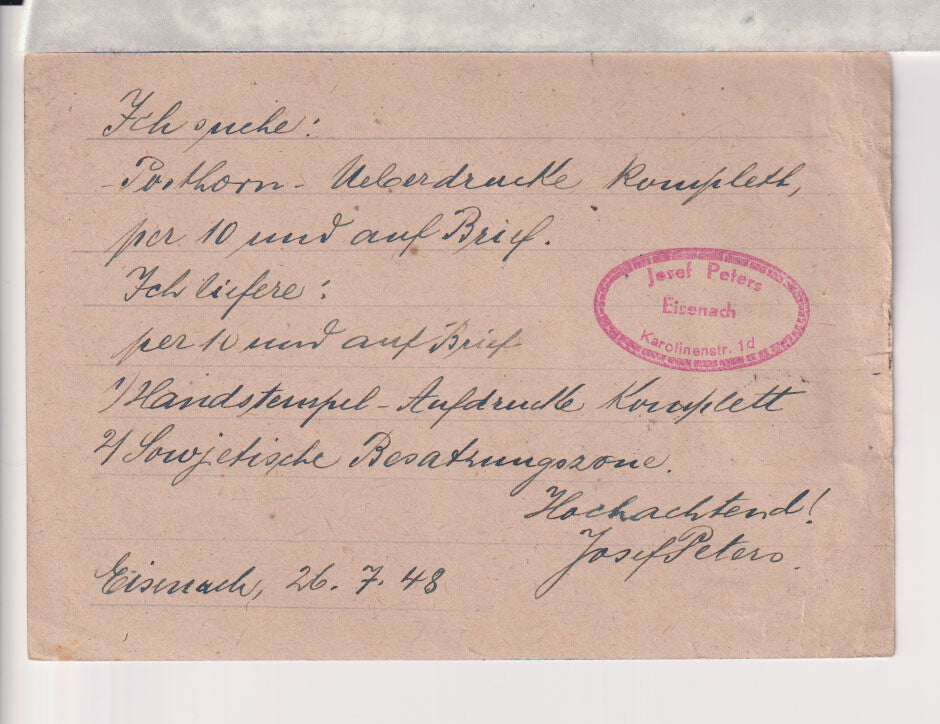 Ich suche:
-Posthorn- Ueberdrucke komplett,
per 10 und auf Brief.
Ich liefere:
per 10 und auf Brief
1) Handstempel-Aufdrucke Komplett
2) Sowjetische Besatzungszone.
Hochachtend!
Josef Peters.
Eisenach, 26.7.48
Josef Peters
Eisenach
Karolinenstr. 1d